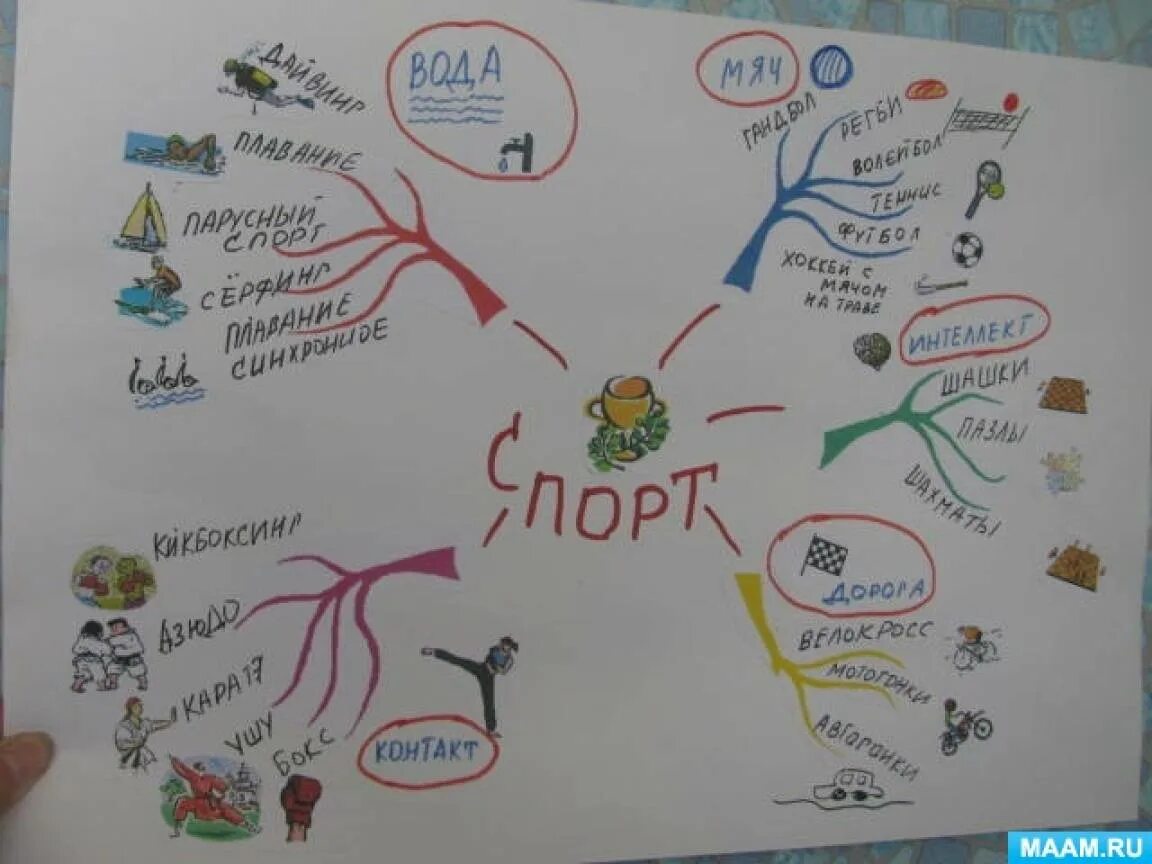 ВОДА
ДАЙВИНГ
ПЛАВАНИЕ
ПАРУСНЫЙ
СПОРТ
СЁРФИНГ
ПЛАВАНИЕ
СИНХРОННОЕ
МЯЧ
ГАНДБОЛ
РЕГБИ
ВОЛЕЙБОЛ
ТЕННИС
ФУТБОЛ
ХОККЕЙ С
МЯЧОМ
НА ТРАВЕ
ИНТЕЛЛЕКТ
ШАШКИ
ПАЗЛЫ
ШАХМАТЫ
СПОРТ
ДОРОГА
ВЕЛОКРОСС
МОТОГОНКИ
АВТОГОНКИ
КИКБОКСИНГ
ДЗЮДО
КАРАТЭ
УШУ
БОКС
КОНТАКТ
MAAM.RU